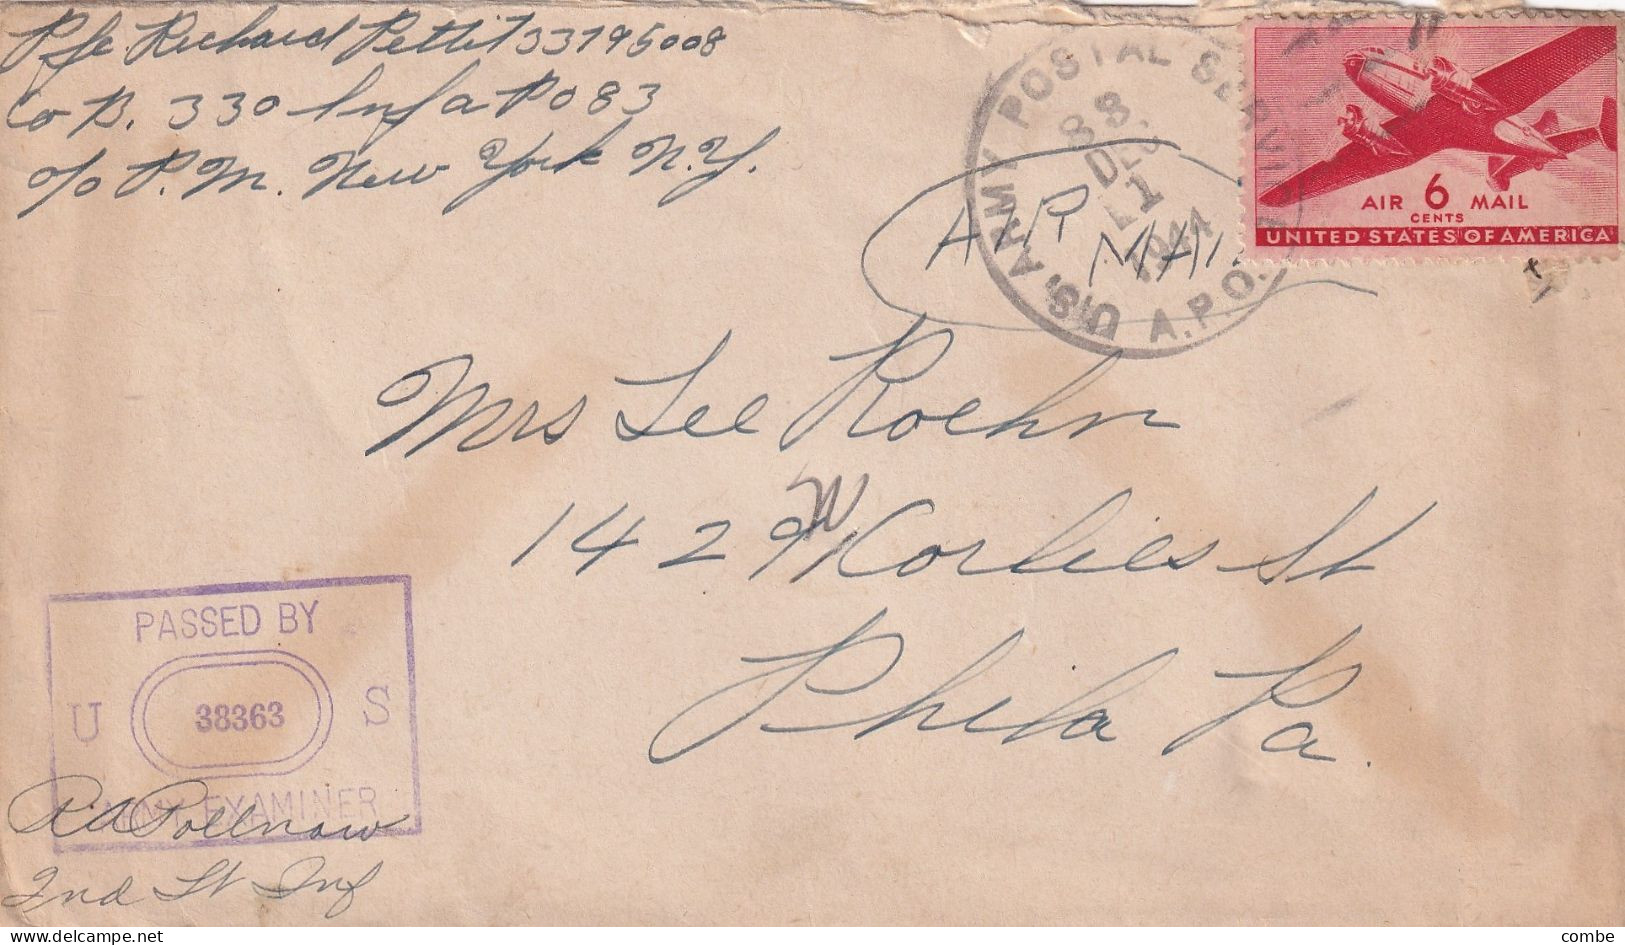 Pfc. Richard Pettit 33795008
Co B. 330 Inf aPO 83
℅ P.M. New York N.Y.
U.S. ARMY POSTAL SERVICE
88
DEC
1
1944
A.P.O.
AIR MAIL
AIR 6 MAIL
CENTS
UNITED STATES OF AMERICA
Mrs Lee Roehn
1429 W Corlies St
Phila Pa.
PASSED BY
U 38363 S
ARMY EXAMINER
RA Pollnow
2nd Lt Inf
delcampe.net
combe